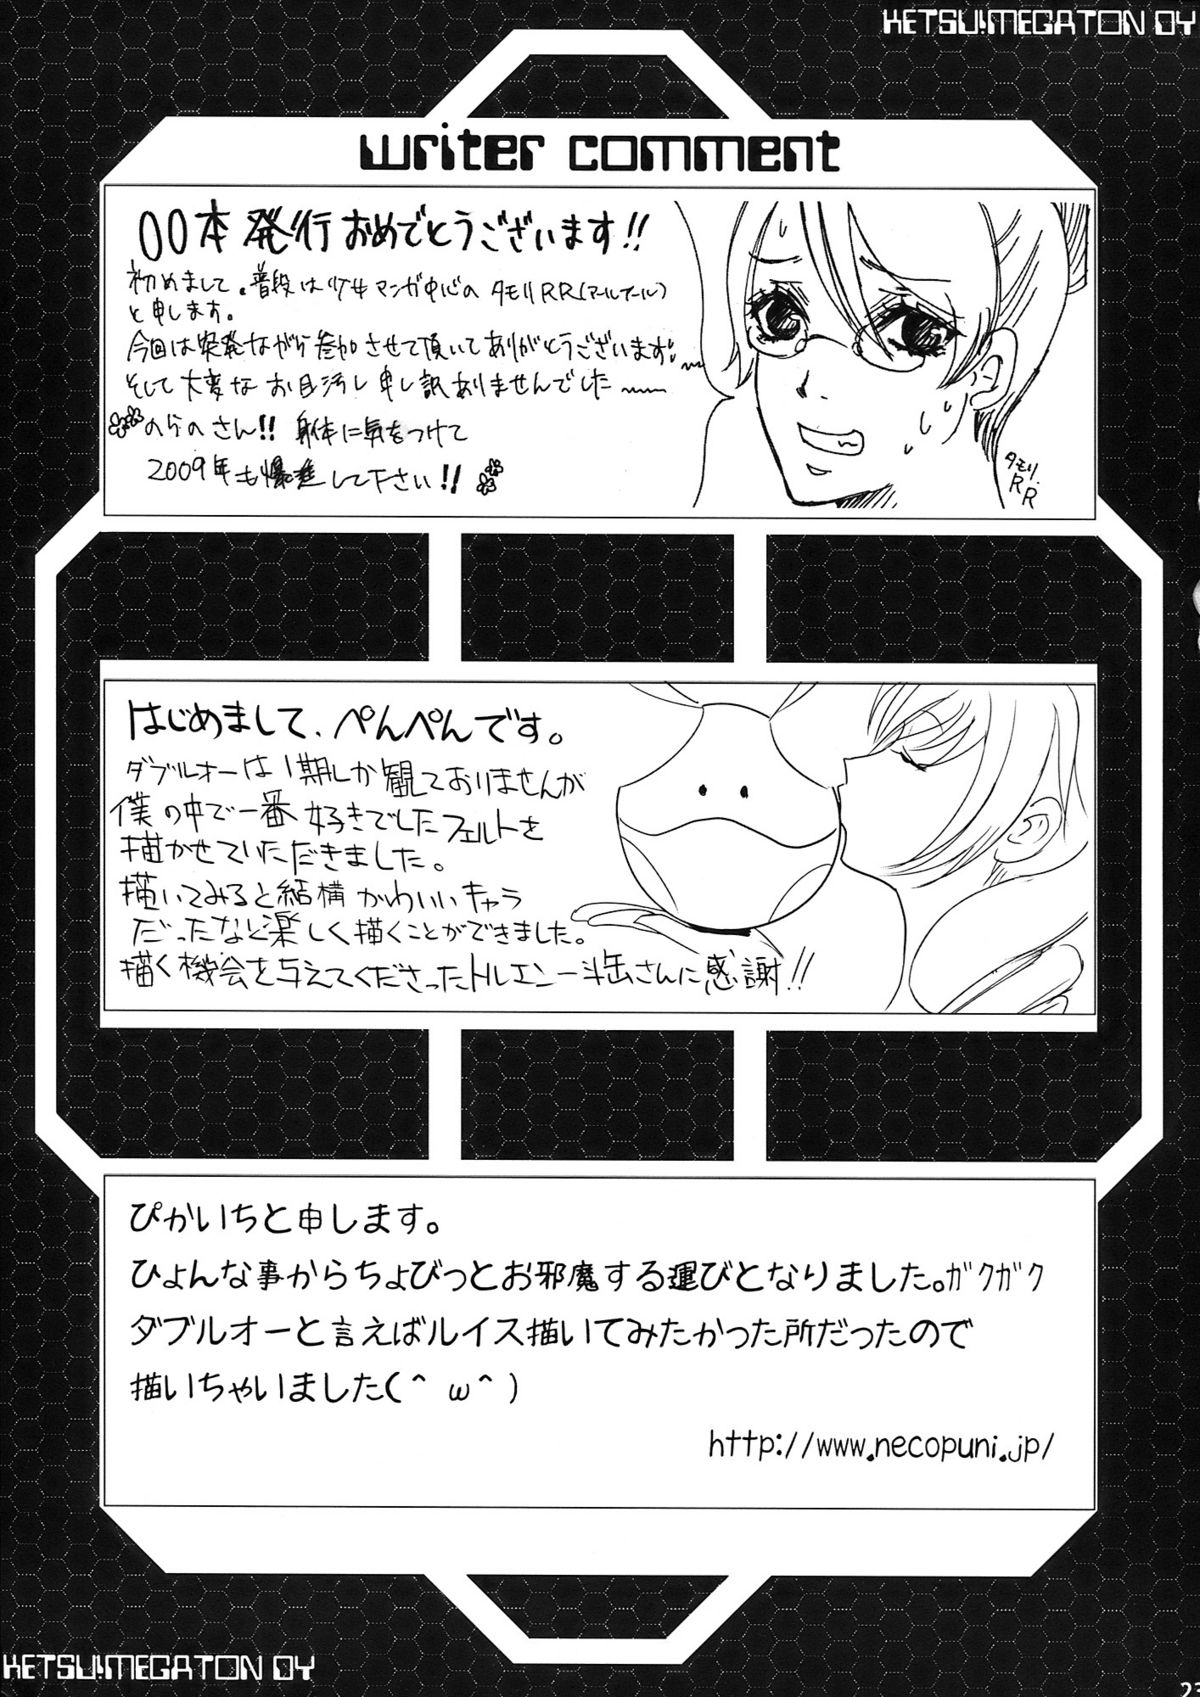 KETSU!MEGATON OY
writer comment
00本発行おめでとうございます!!
初めまして。普段は少女マンガ中心のタモリRR(アールアール)
と申します。
今回は突発ながら参加させて頂いてありがとうございます。
そして大変なお目汚し申し訳ありませんでした〜
のらのさん!! 身体に気をつけて
2009年も爆進して下さい!!
タモリ
RR
はじめまして、ぺんぺんです。
ダブルオーは1期しか観ておりませんが
僕の中で一番好きでしたフェルトを
描かせていただきました。
描いてみると結構かわいいキャラ
だったなと楽しく描くことができました。
描く機会を与えてくださったトルエン一斗缶さんに感謝!!
ぴかいちと申します。
ひょんな事からちょびっとお邪魔する運びとなりました。ガクガク
ダブルオーと言えばルイス描いてみたかった所だったので
描いちゃいました(^ω^)
http://www.necopuni.jp/
KETSU!MEGATON OY